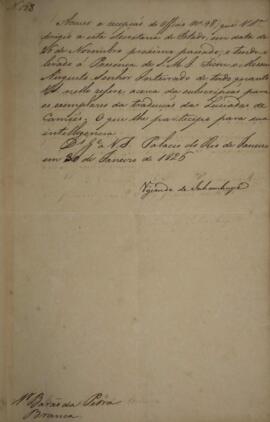 Accuso a recepção do Officio Nº 48, que V. Sª
dirigio a esta Secretaria de Estado, em data de
26 de Novembro proximo passado, e tendo
levado à Presença de S. M. I. ficou o Mesmo
Augusto Senhor Inteirado de tudo quanto
VS nelle refere acerca da subscripção para
os exemplares da traducção das Luziadas de
Camões. O que lhe participo para sua
intelligencia.
Ds Ge a V. S. Palacio do Rio de Janeiro
em 30 de Janeiro de 1825
Visconde de Inhambupe
Sr Barão da Pedra
Branca.